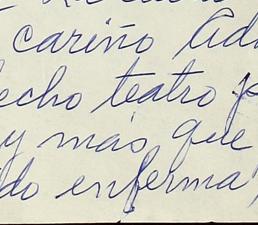 cariño Ad
echo teatro p
y más que
do enferma,